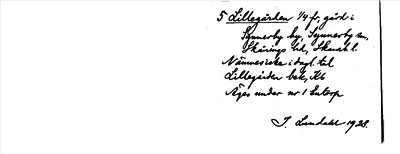 5 Lillegården 1/4 fr, gård i
Synnerby by, Synnerby sn,
Skånings hd, Skarab. l.
Nännes icke i dagl. tal
Lillegården bek, Kb
Äges under nr 1 Entorp
I. Lundahl 1928.